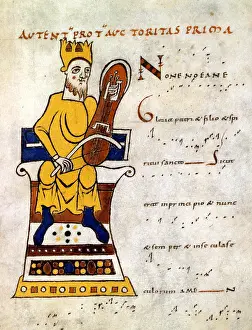 AUTENT PROT AUCTORITAS PRIMA
NONENOEANE
Gloria patri & filio & spi
ritui sancto Sicut
erat inprincipio & nunc
& semper & inse culase
culorum AMEN